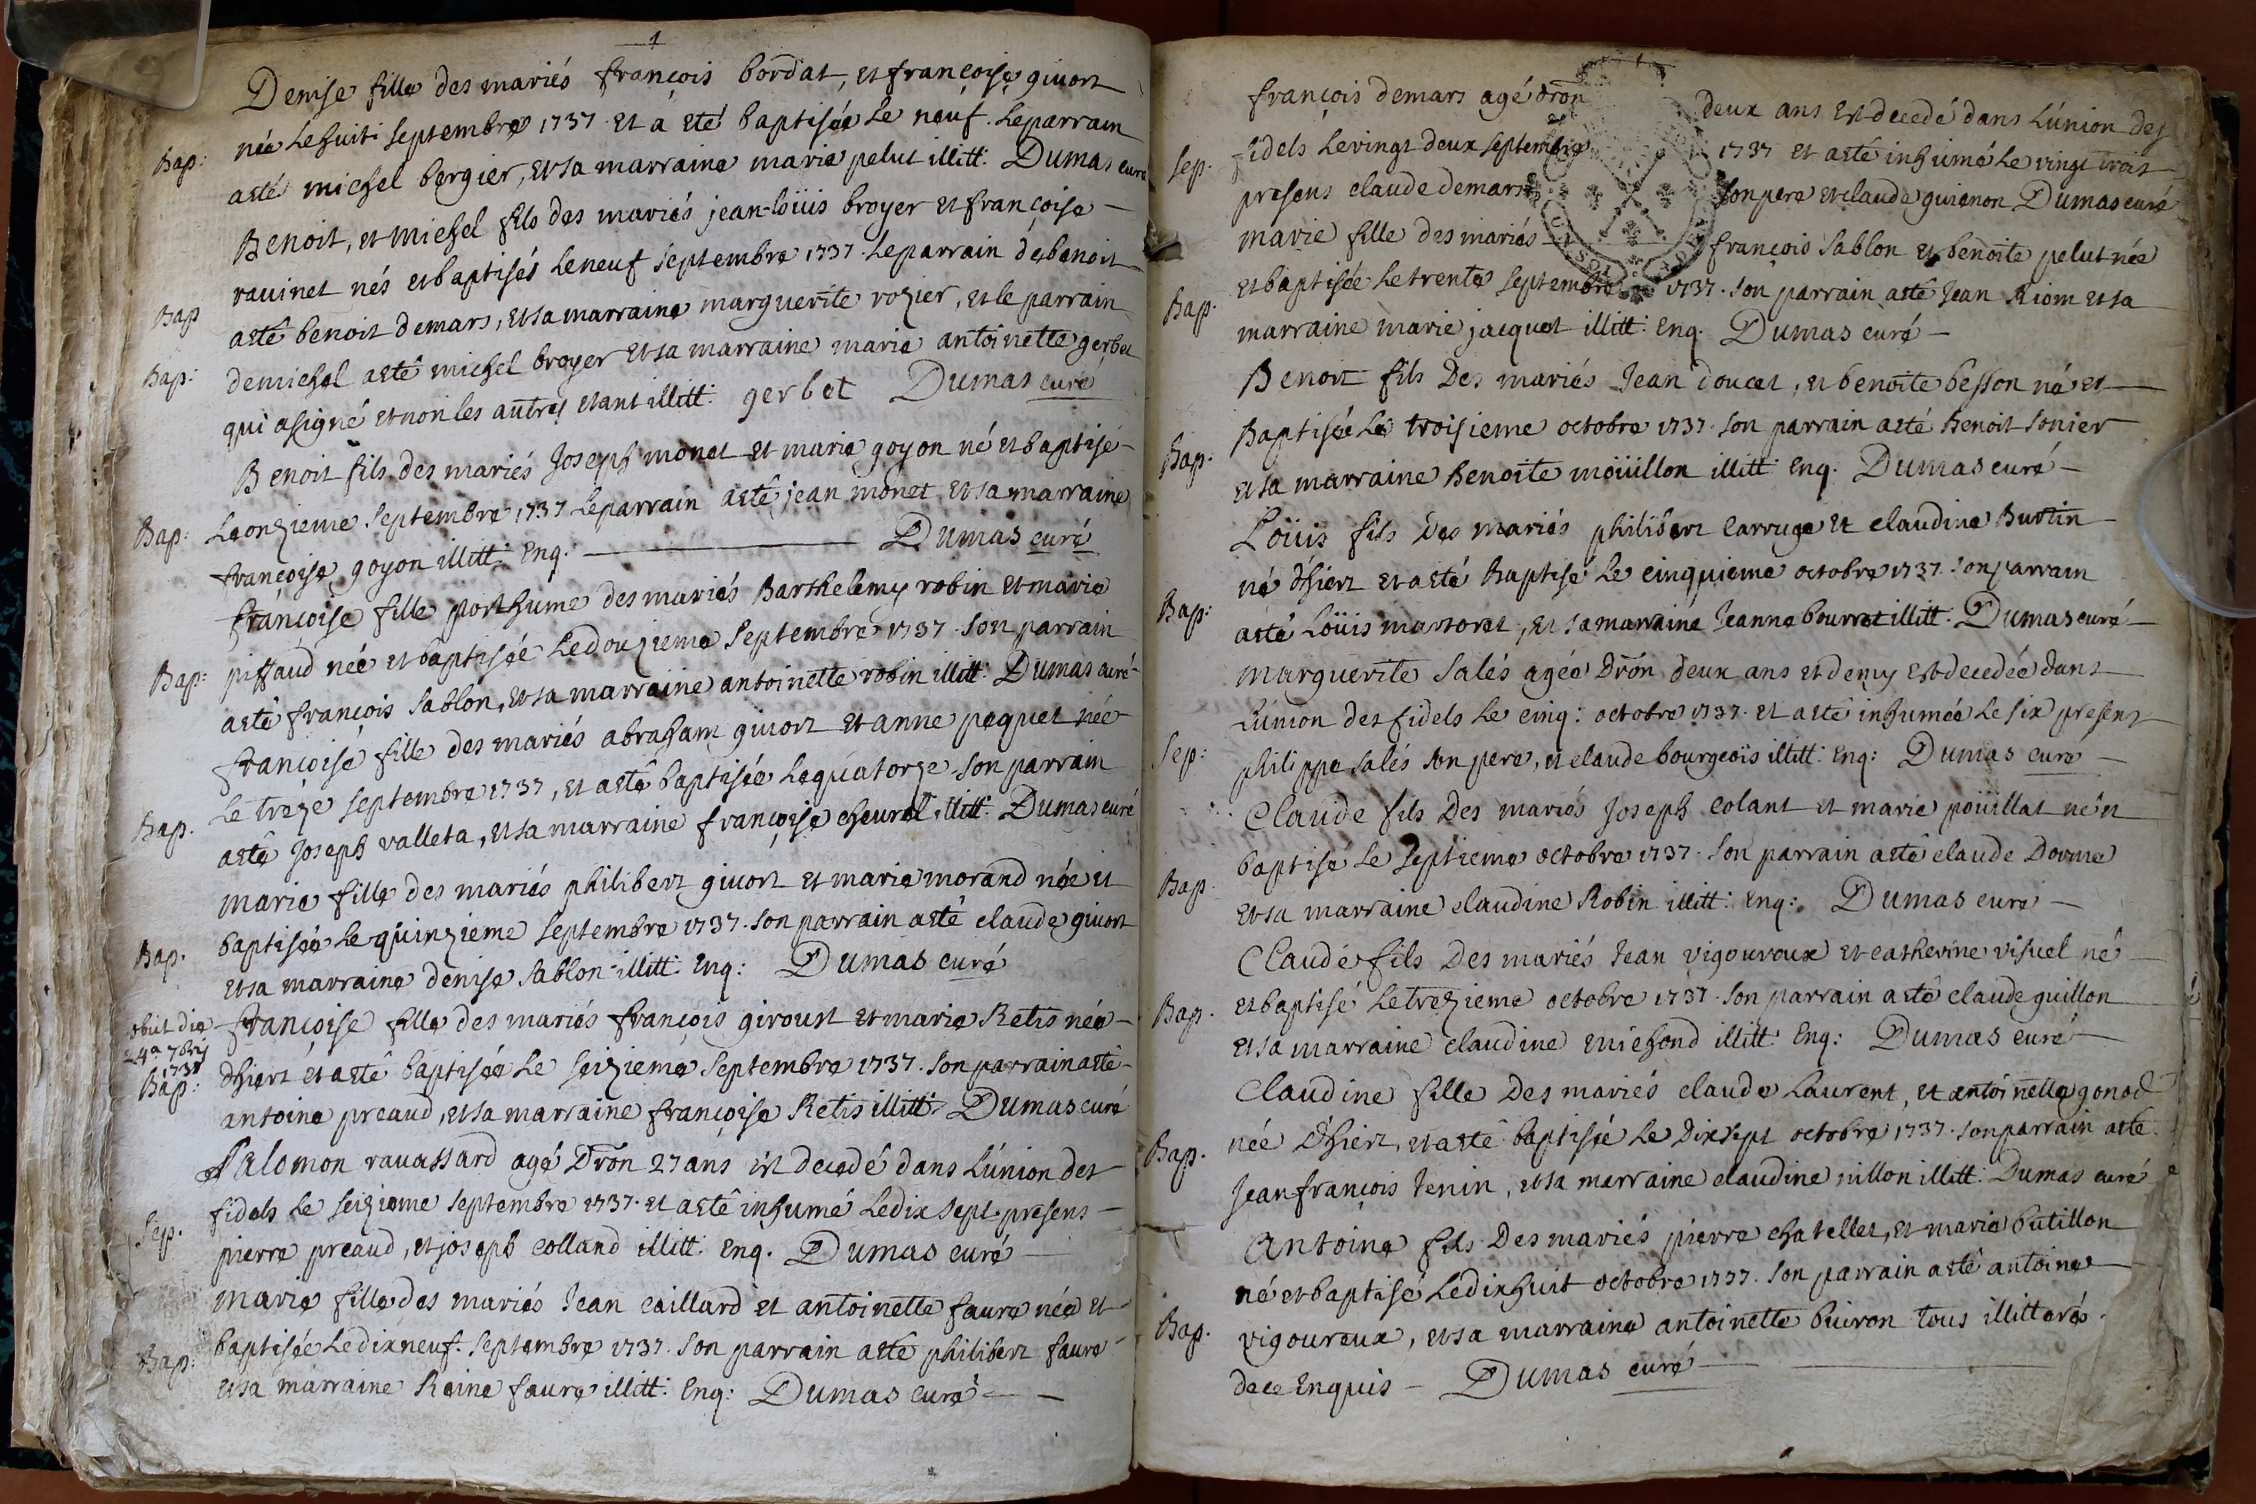 1
Denise fille des mariés françois bordat, et françoise givort
née le huiti septembre 1737 et a eté baptisée le neuf. Le parrain
Bap:
aeté michel bergier, et sa marraine marie pelut illitt: Dumas curé
Benoit, et michel fils des mariés jean-loüis broyer et françoise
ravinet nés et baptisés le neuf septembre 1737. Le parrain de benoit
Bap
aeté benoit demars, et sa marraine marguerite rozier, et le parrain
Bap:
de michel aeté michel broyer et sa marraine marie antoinette gerbet
qui a signé et non les autres etant illitt: gerbet Dumas curé
Benoit fils des mariés Joseph monet et marie goyon né et baptisé
Bap:
Le onzieme septembre 1737 Le parrain aeté jean monet et sa marraine
françoise goyon illitt: Enq. Dumas curé
françoise fille posthume des mariés Barthelemy robin et marie
Bap:
piffaud née et baptisée le douzieme septembre 1737. son parrain
aeté françois sablon, et sa marraine antoinette robin illitt: Dumas curé
françoise fille des mariés abraham givort et anne pequet née
Le treze septembre 1737, et aeté baptisée le quatorze. son parrain
Bap.
aeté Joseph valleta, et sa marraine françoise illitt: Dumas curé
marie fille des mariés philibert givort et marie morand née et
baptisée le quinzieme septembre 1737. son parrain aeté claude givort
Bap.
et sa marraine denise sablon illitt: Enq: Dumas curé
obiit die
4a 7bris
1738
françoise fille des mariés françois giroust et marie Retis née
Bap:
d'hiert et aeté baptisée le seizieme septembre 1737. son parrain aeté
antoine preaud, et sa marraine françoise Retis illitt: Dumas curé
Salomon ravassard agé d'ron 27 ans est decedé dans l'union des
fidels le seizieme septembre 1737. et aeté inhumé le dix sept. presens
Sep.
pierre preaud, et joseph colland illitt: Enq. Dumas curé
marie fille des mariés Jean caillard et antoinette faure née et
Bap:
baptisée le dixneuf. septembre 1737. son parrain aeté philibert faure
et sa marraine Reine faure illitt: Enq: Dumas curé
françois demars agé d'ron deux ans est decedé dans l'union des
Sep.
fidels le vingt deux septembre 1737 et aeté inhumé le vingt trois
presens claude demars son pere et claude guienon Dumas curé
marie fille des mariés françois sablon et benoite pelut née
Bap.
et baptisée le trente septembre 1737. son parrain aeté Jean Riom et sa
marraine marie jacquet illitt: Enq. Dumas curé
Benoit fils des mariés Jean doucet, et benoite besson né et
Bap.
Baptisée Le troisieme octobre 1737. son parrain aeté Benoit sonier
et sa marraine Benoite moüillon illitt: Enq. Dumas curé
Loüis fils des mariés philibert carruge et claudine Burtin
né d'hiert et aeté Baptisé le cinquieme octobre 1737. son parrain
Bap:
aeté Loüis martoret, et sa marraine Jeanne bourrat illitt. Dumas curé
marguerite salés agée d'ron deux ans et demy est decedée dans
L'union des fidels le cinq: octobre 1737. et aeté inhumée le six presens
Sep:
philippe salés son pere, et claude bourgeois illitt: Enq: Dumas curé
Claude fils des mariés Joseph colant et marie poüillat né et
baptisé le septieme octobre 1737. son parrain aeté claude Dorme
Bap.
et sa marraine claudine Robin illitt: Enq: Dumas curé
Claude fils des mariés Jean vigouroux et catherine visuel né
Bap.
et baptisé le trezieme octobre 1737. son parrain aeté claude guillon
et sa marraine claudine michond illitt: Enq: Dumas curé
Claudine fille des mariés claude Laurent, et antoinette gonod
née d'hiert, et aeté baptisée le dix sept octobre 1737. son parrain aeté
Bap.
Jean françois Jenin, et sa marraine claudine nillon illitt: Dumas curé
Antoine fils des mariés pierre chatellet, et marie butillon
né et baptisé le dixhuit octobre 1737. son parrain aeté antoine
Bap.
vigoureux, et sa marraine antoinette buiron tous illitterés.
de ce Enquis Dumas curé